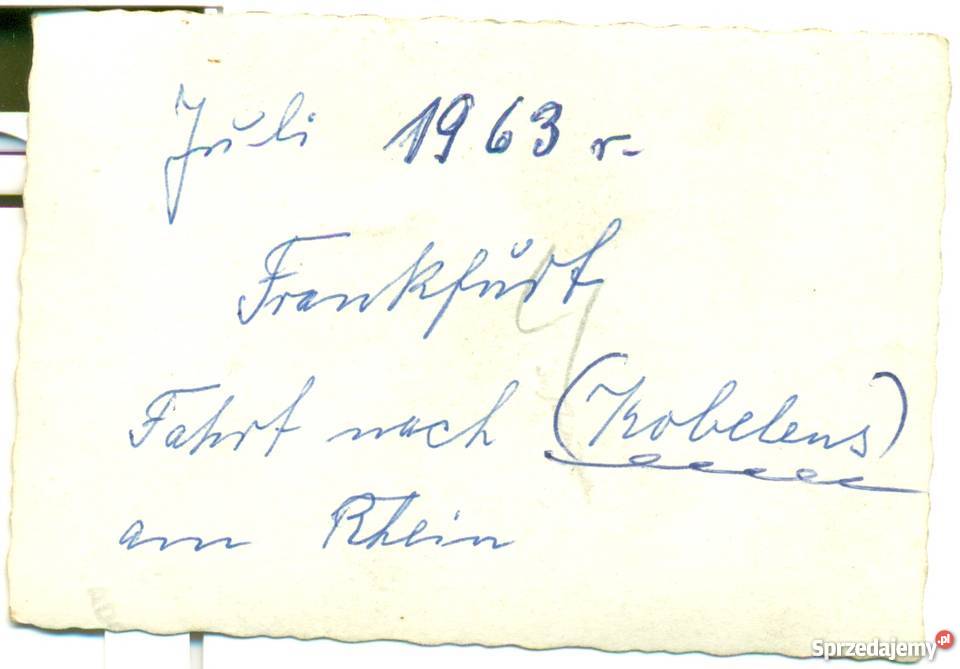 Juli 1963 r.
Frankfurt
Fahrt nach (Kobelens)
am Rhein
Sprzedajemy.pl